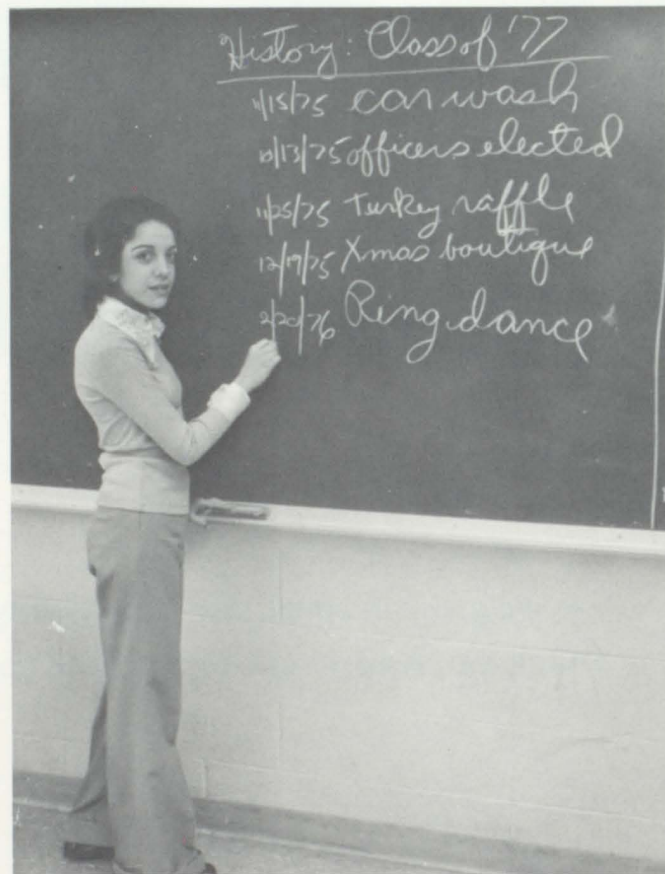 History: Class of '77
11/15/75 car wash
10/13/75 officers elected
11/25/75 Turkey raffle
12/19/75 Xmas boutique
2/20/76 Ring dance